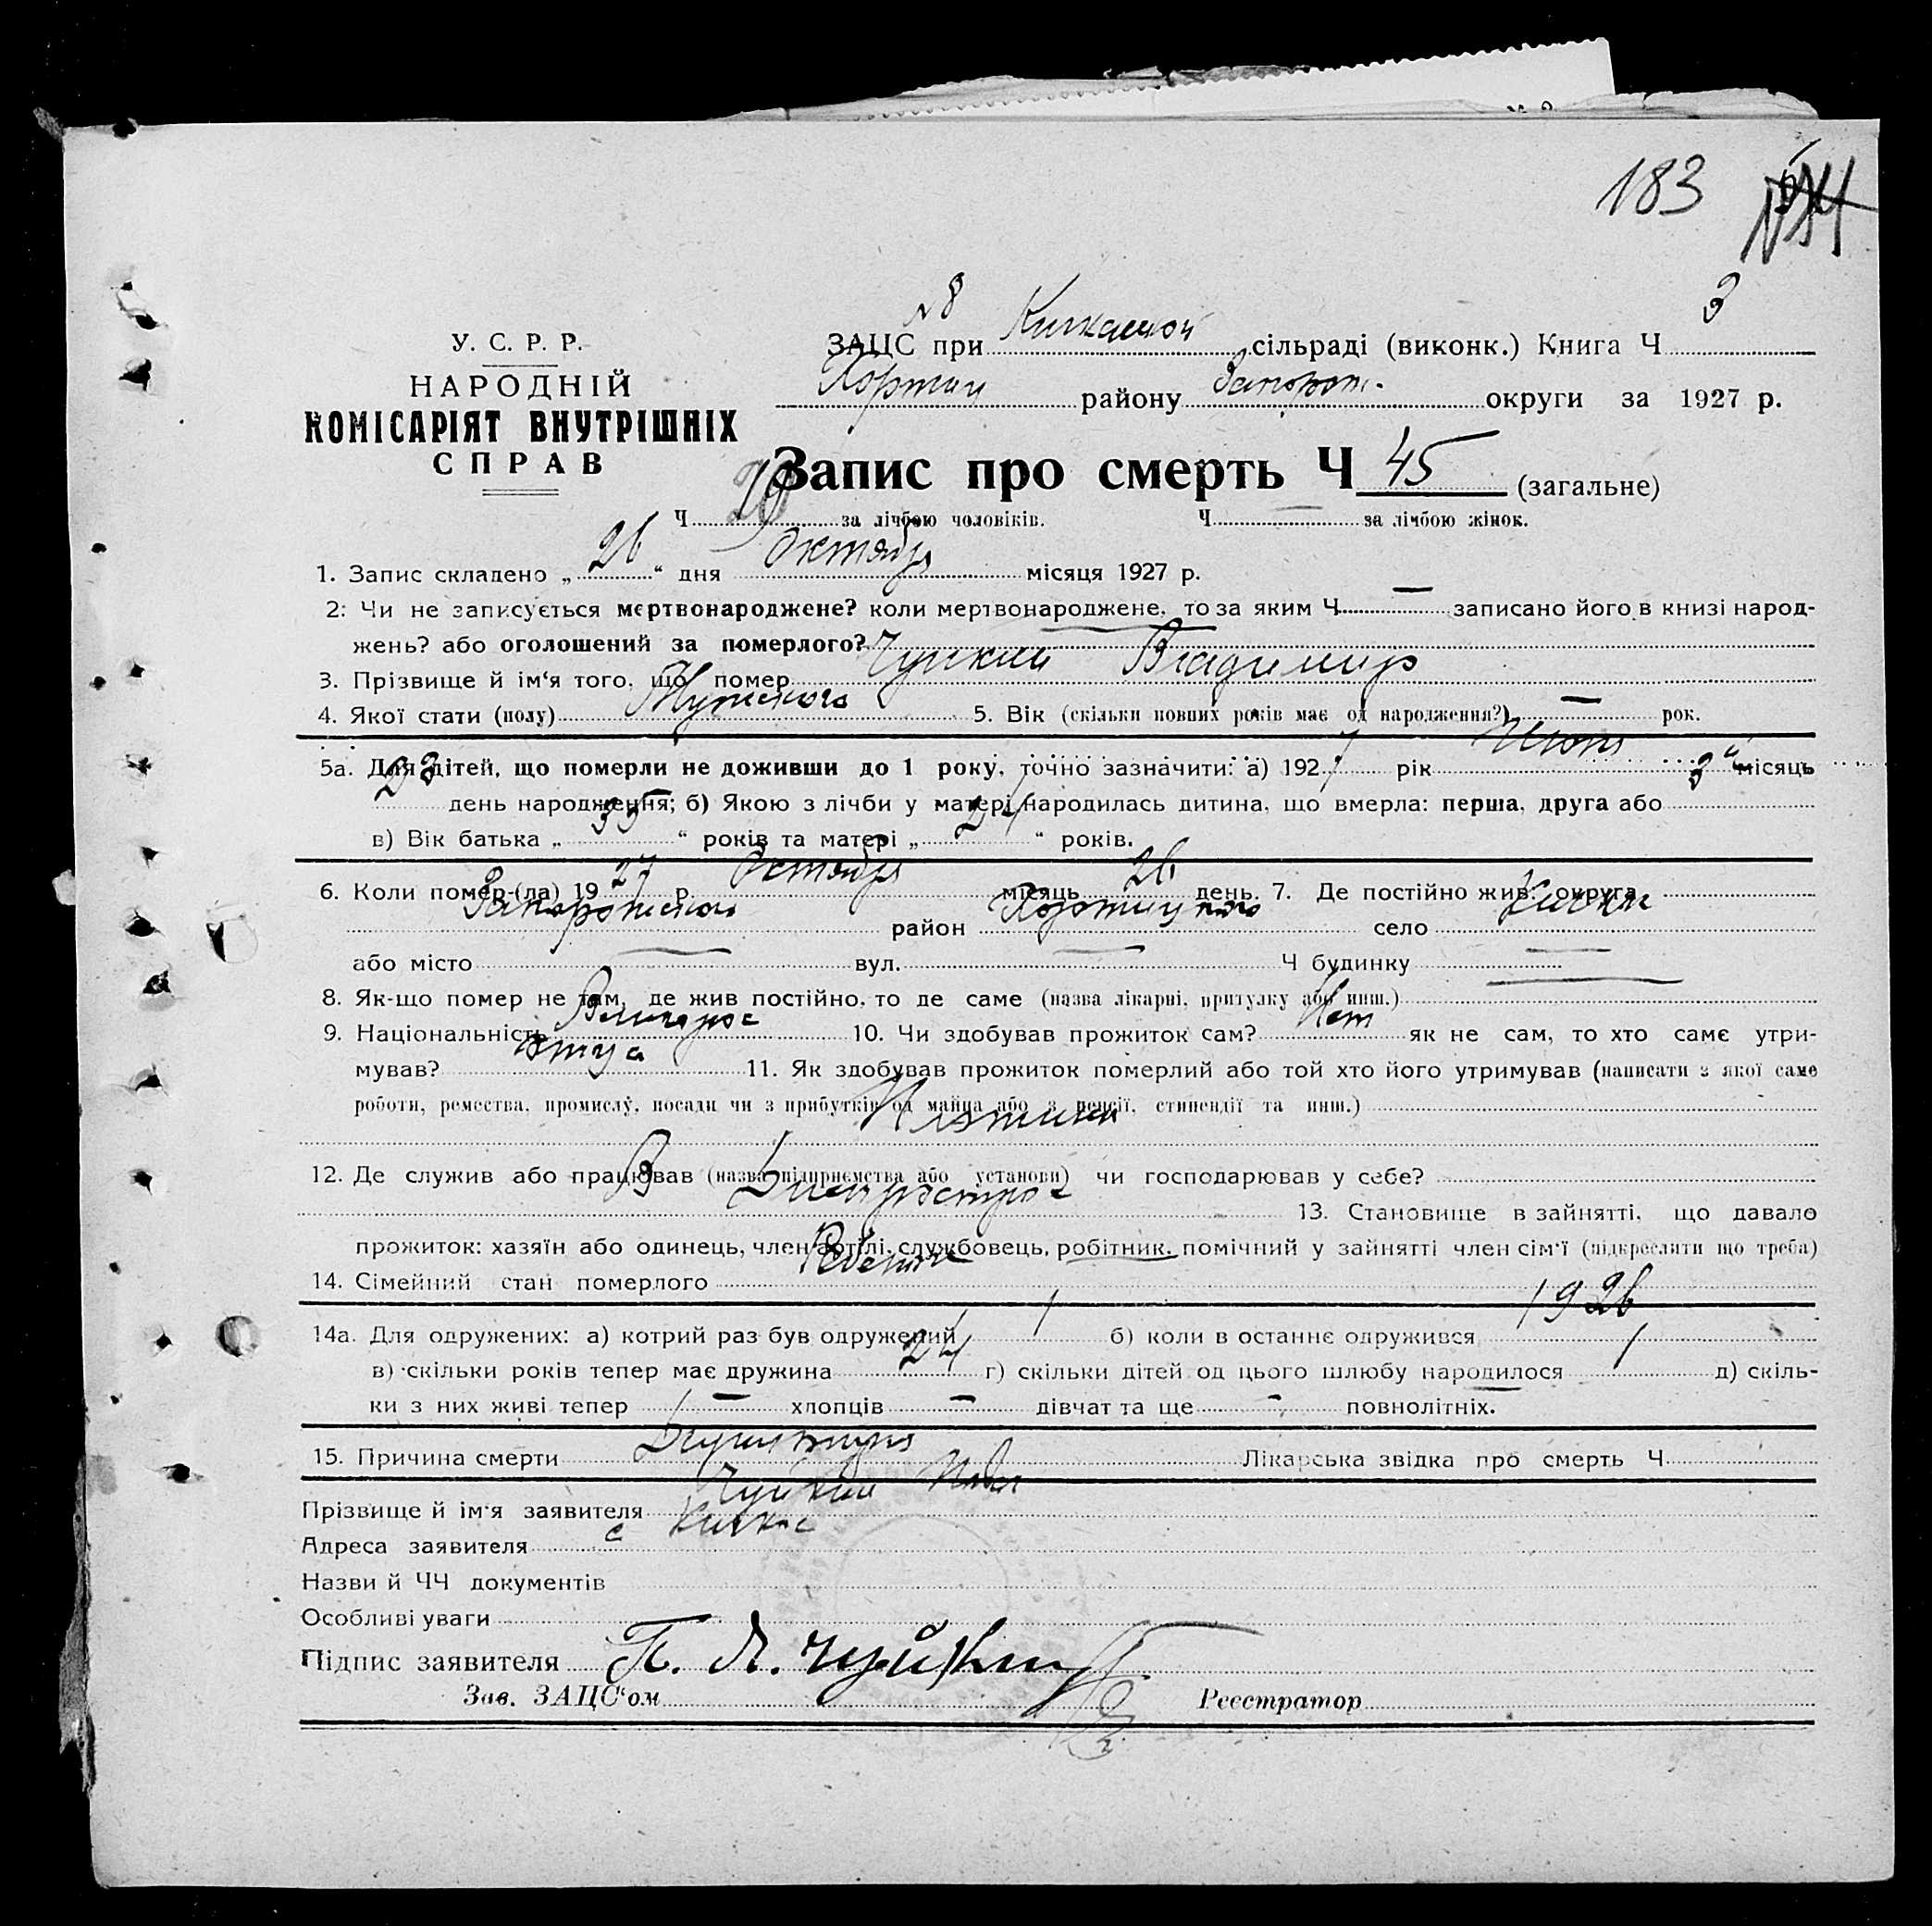 183
№8
У. С. Р. Р.
НАРОДНІЙ
КОМІСАРІЯТ ВНУТРІШНІХ
СПРАВ
ЗАЦС при Кичкаской сільраді (виконк.) Книга Ч 3
Хортиц району Запорож. округи за 1927 р.
Запис про смерть Ч 45 (загальне)
Ч за лічбою чоловіків. Ч — за лічбою жінок.
1. Запис складено „ 26 “ дня Октября місяця 1927 р.
2: Чи не записується мертвонароджене? коли мертвонароджене, то за яким Ч — записано його в книзі народ-
жень? або оголошений за померлого? —
3. Прізвище й ім'я того, що помер Чуйкин Владимир
4. Якої стати (полу) Мужского 5. Вік (скільки повних років має од народження?) — рок.
5а. Для дітей, що померли не доживши до 1 року, точно зазначити: а) 1927 рік Июня місяць
23 день народження; б) Якою з лічби у матері народилась дитина, що вмерла: перша, друга або 3й
в) Вік батька „ 35 “ років та матері „ 24 “ років.
6. Коли помер-(ла) 19 27 р. Октября місяць 26 день. 7. Де постійно жив: округа
Запорожского район Хортицкого село Кичкас
або місто — вул. — Ч будинку —
8. Як-що помер не там, де жив постійно, то де саме (назва лікарні, притулку або инш.) —
9. Національність Великорос 10. Чи здобував прожиток сам? Нет як не сам, то хто саме утри-
мував? отца 11. Як здобував прожиток померлий або той хто його утримував (написати з якої саме
роботи, ремества, промислу, посади чи з прибутків од майна або з пенсії, стипендії та инш.)
Плотник
12. Де служив або працював (назва підприємства або установи) чи господарював у себе?
В Днепрострое 13. Становище в зайнятті, що давало
прожиток: хазяїн або одинець, член артілі, службовець, робітник, помічний у зайнятті член сім'ї (підкреслити що треба)
14. Сімейний стан померлого Ребенок
14а. Для одружених: а) котрий раз був одружений 1 б) коли в останнє одружився 1926
в) скільки років тепер має дружина 24 г) скільки дітей од цього шлюбу народилося 1 д) скіль-
ки з них живі тепер — хлопців — дівчат та ще — повнолітніх.
15. Причина смерти Лікарська звідка про смерть Ч
Прізвище й ім'я заявителя Чуйкин Павел
Адреса заявителя с Кичкас
Назви й ЧЧ документів
Особливі уваги
Підпис заявителя П. А. Чуйкин
Зав. ЗАЦС'ом Реєстратор